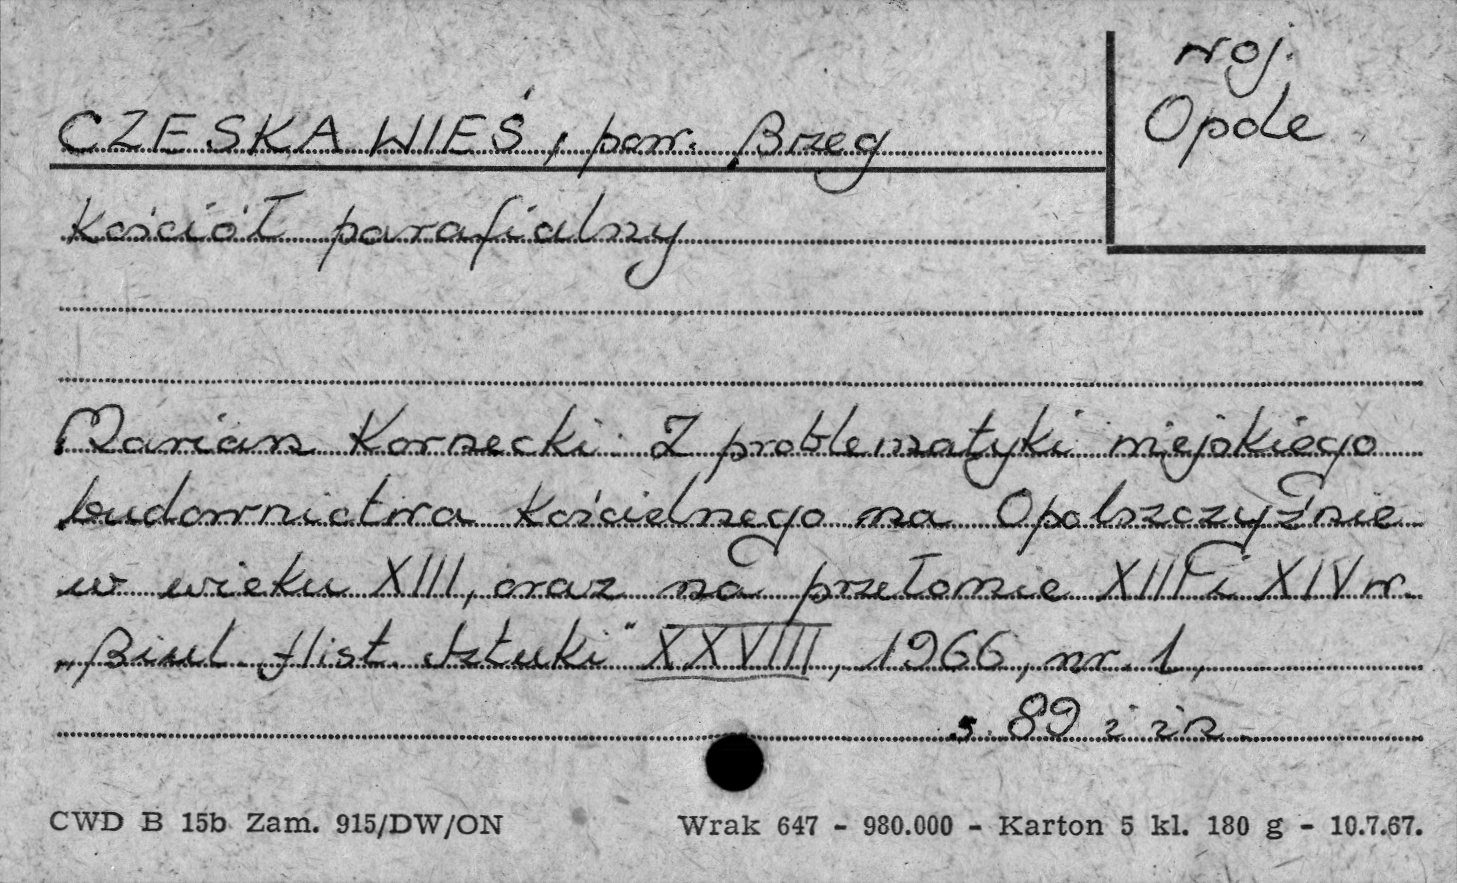 woj.
Opole
CZESKA WIEŚ, pow. Brzeg
Kościół parafialny
Marian Kornecki. Z problematyki miejskiego
budownictwa kościelnego na Opolszczyźnie
w wieku XIII, oraz na przełomie XIII i XIV w.
„Biul. Hist. Sztuki" XXVIII, 1966, nr. 1,
s. 89 i in.
CWD B 15b Zam. 915/DW/ON Wrak 647 - 980.000 - Karton 5 kl. 180 g - 10.7.67.